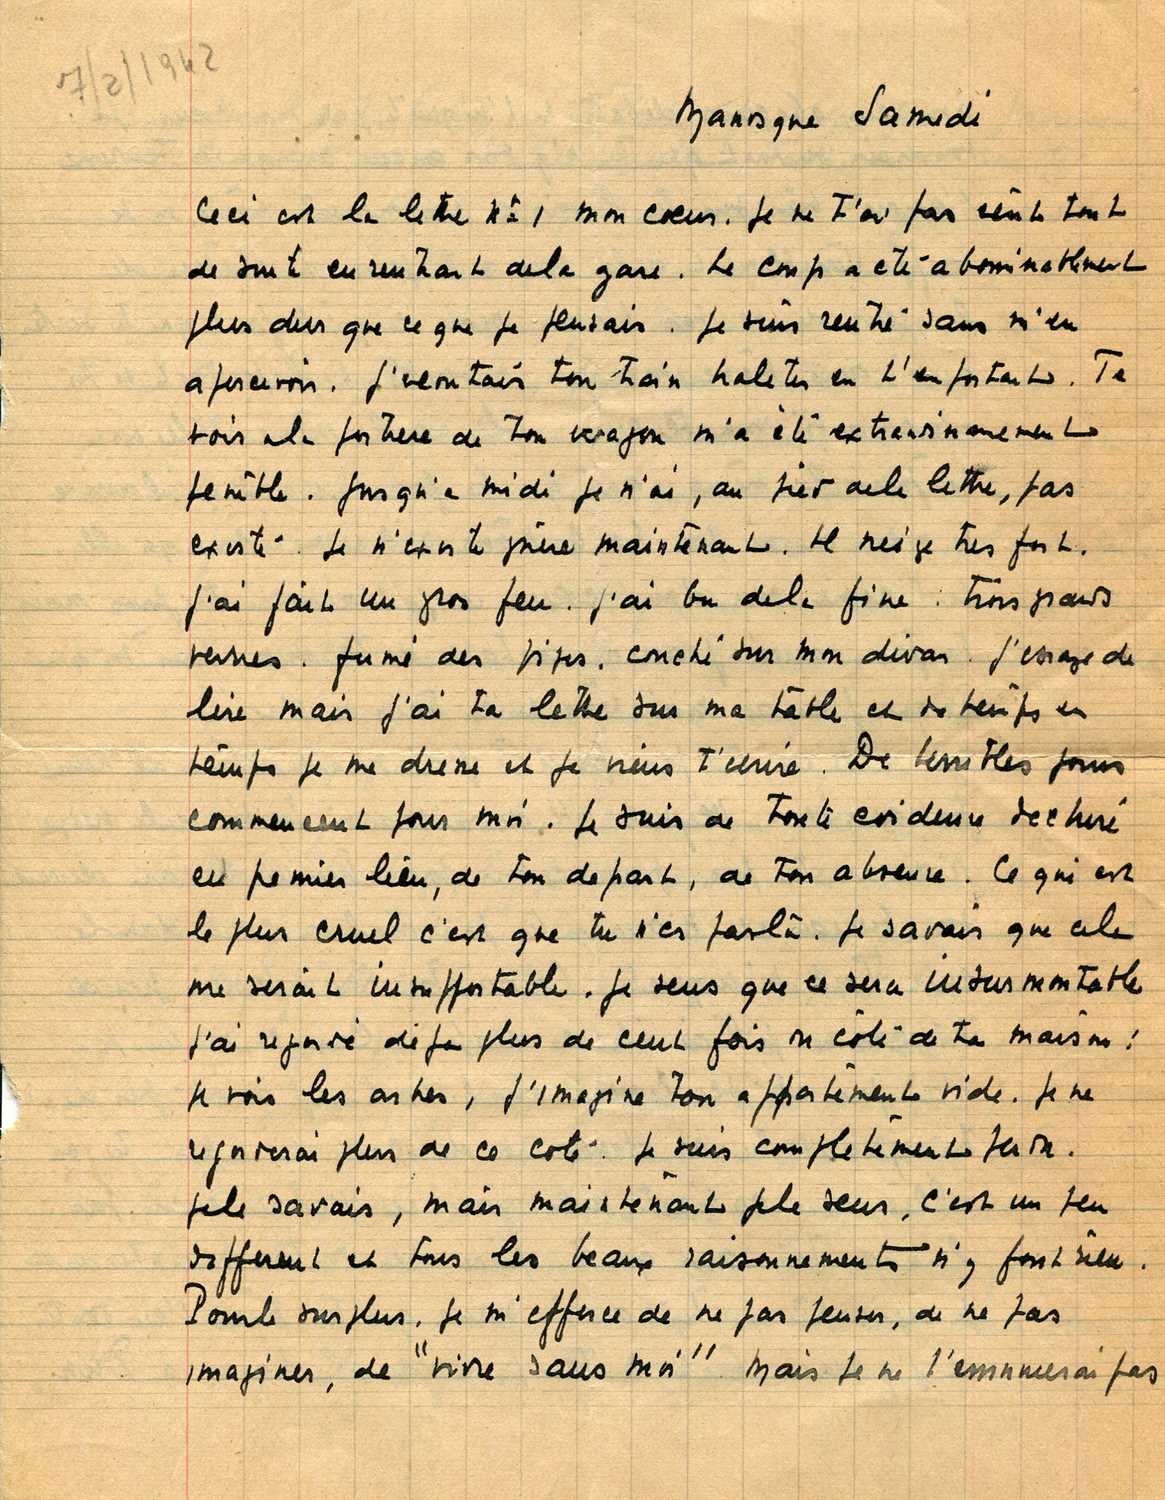 7/2/1942
Manosque Samedi
Ceci est la lettre n° 1 mon cœur. Je ne t'ai pas écrit tout
de suite en rentrant de la gare. Le coup a été abominablement
plus dur que ce que je pensais. Je suis rentré sans m'en
apercevoir. J'écoutais ton train haleter en t'emportant. Te
voir à la portière de ton wagon m'a été extraordinairement
pénible. Jusqu'à midi je n'ai, au pied de la lettre, pas
existé. Je n'existe guère maintenant. Il neige très fort.
J'ai fait un gros feu. J'ai bu de la fine. Trois grands
verres. fumé des pipes. couché sur mon divan. J'essaye de
lire mais j'ai ta lettre sur ma table et de temps en
temps je me dresse et je viens t'écrire. De terribles jours
commencent pour moi. Je suis de toute évidence déchiré
en premier lieu, de ton départ, de ton absence. Ce qui est
le plus cruel c'est que tu n'es pas là. Je savais que cela
me serait insupportable. Je sens que ce sera insurmontable
J'ai regardé déjà plus de cent fois du côté de ta maison :
je vois les arbres, j'imagine ton appartement vide. Je ne
regarderai plus de ce côté. Je suis complètement perdu.
Je le savais, mais maintenant je le sens, c'est un peu
différent et tous les beaux raisonnements n'y font rien.
Pour le surplus. Je m'efforce de ne pas penser, de ne pas
imaginer, de "vivre sans moi" Mais je ne t'ennuierai pas